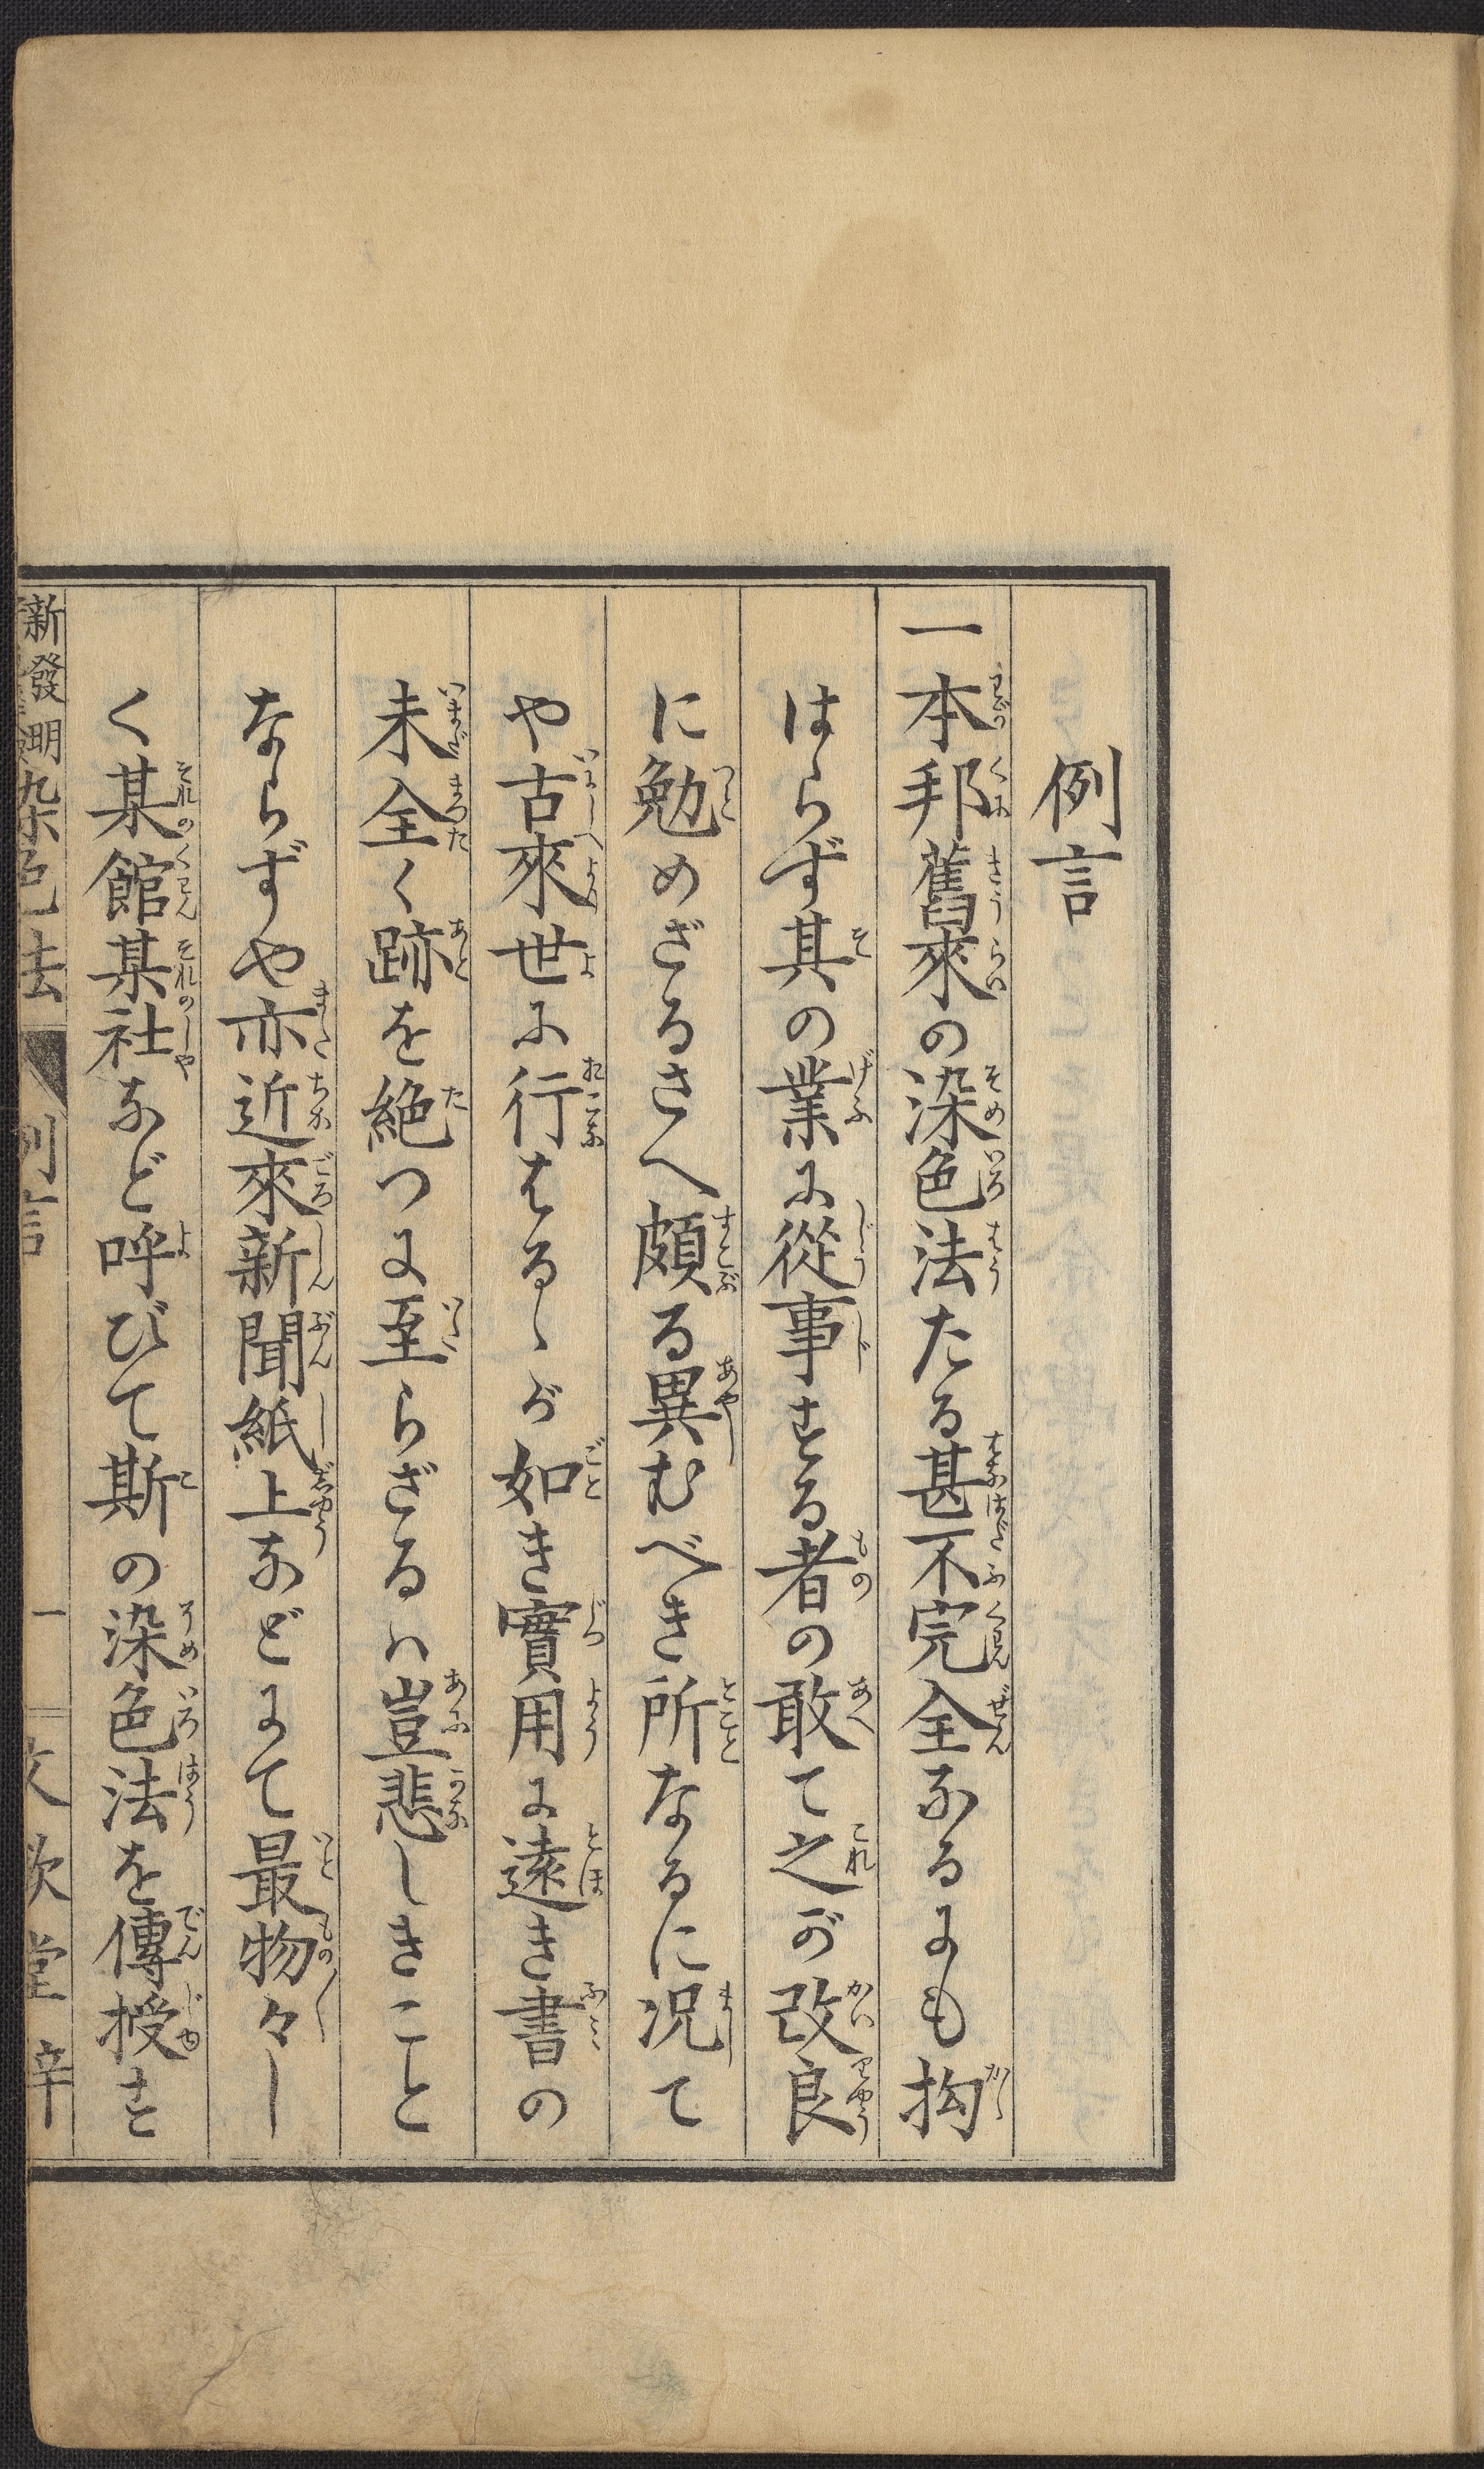 例言
一本邦舊來の染色法たる甚不完全なるにも拘
はらず其の業に從事する者の敢て之が改良
に勉めざるさへ頗る異むべき所なるに况て
や古來世に行はるゝが如き實用に遠き書の
未全く跡を絶つに至らざるハ豈悲しきこと
ならずや亦近來新聞紙上などにて最物々し
く某館某社など呼びて斯の染色法を傳授す
新發明染色法 例言 一